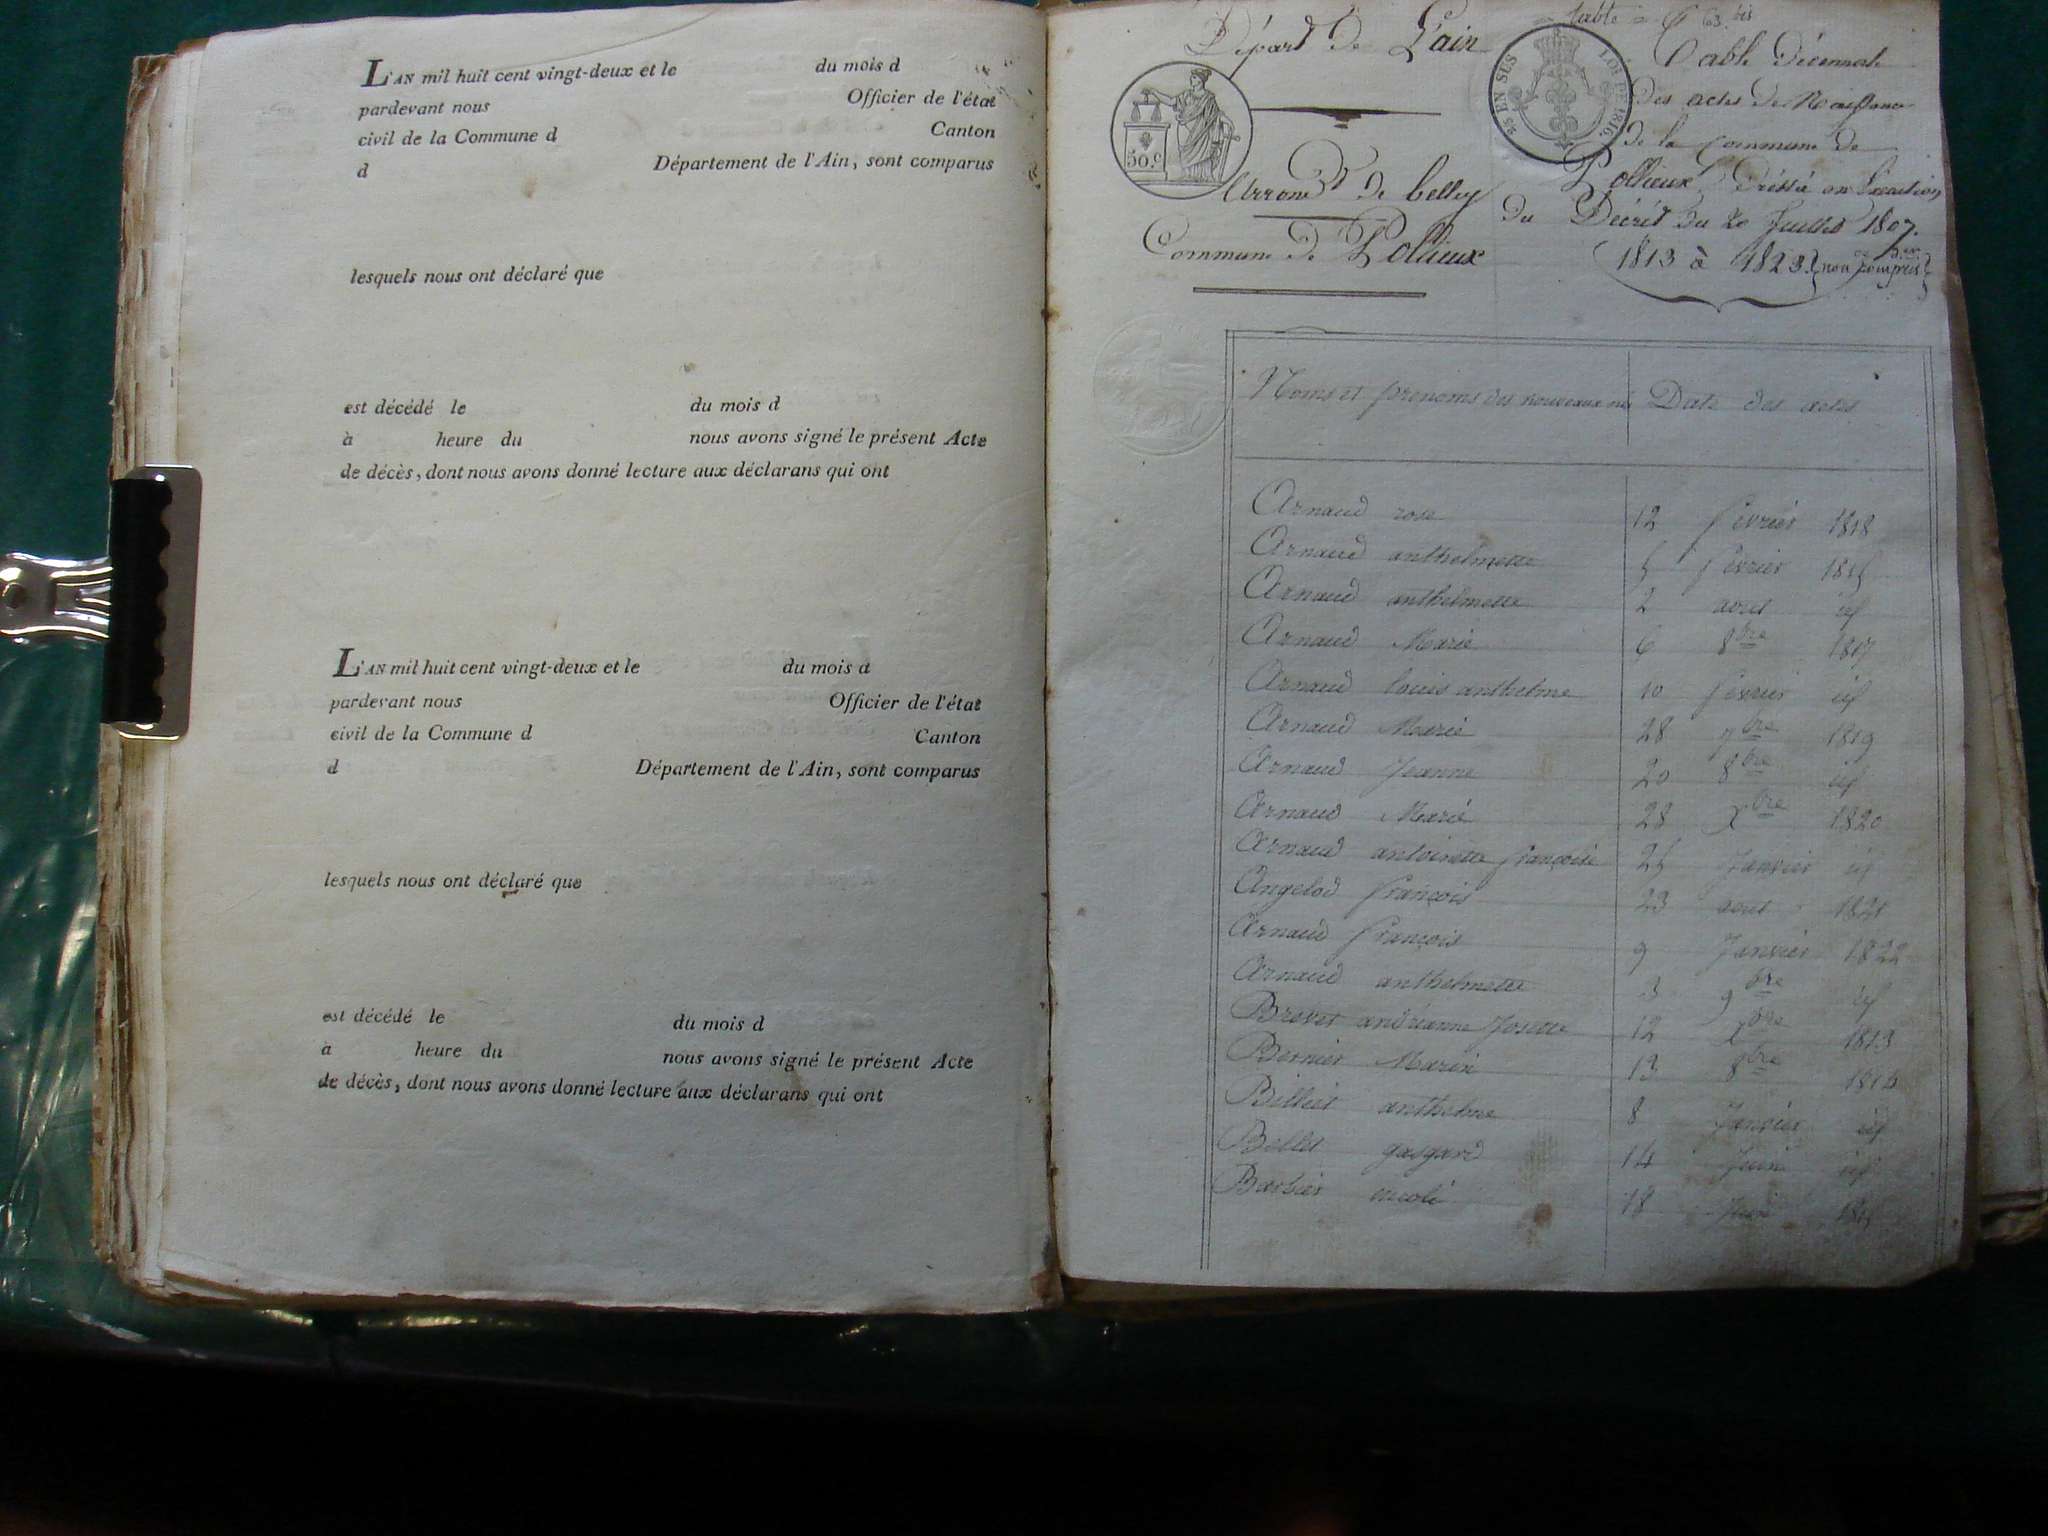 L'AN mil huit cent vingt-deux et le du mois d
pardevant nous Officier de l'état
civil de la Commune d Canton
d Département de l'Ain, sont comparus
lesquels nous ont déclaré que
est décédé le du mois d
à heure du nous avons signé le présent Acte
de décès, dont nous avons donné lecture aux déclarans qui ont
L'AN mil huit cent vingt-deux et le du mois d
pardevant nous Officier de l'état
civil de la Commune d Canton
d Département de l'Ain, sont comparus
lesquels nous ont déclaré que
est décédé le du mois d
à heure du nous avons signé le présent Acte
de décès, dont nous avons donné lecture aux déclarans qui ont
table
Départ de L'ain
50.c
LOI DE 1816.
Arrond.t de belley
Commune de Pollieux
Table Décennale
des actes de Naissance
de la Commune de
Pollieux, Dressée en Exécution
du Décrèt du 20 Juillet 1807.
1813 à 1823 (non compris)
Noms et prenoms des nouveaux nés Date des actes
Arnaud rose 12 fevrier 1818
Arnaud anthelmette 5 fevrier 1815
Arnaud anthelmette 2 avril id
Arnaud Marie 6 8bre 1817
Arnaud louis anthelme 10 fevrier id
Arnaud Marie 28 7bre 1819
Arnaud Jeanne 20 8bre id
Arnaud Marie 28 Xbre 1820
Arnaud antoinette françoise 25 Janvier id
Angelod françois 23 aout 1821
Arnaud françois 9 Janvier 1822
Arnaud anthelmette 3 9bre id
Brevet andrianne Josette 12 Xbre 1813
Bernier Marin 13 8bre 1814
Billiet anthelme 8 Janvier id
Bellet gaspard 14 Juin id
Barbier 18